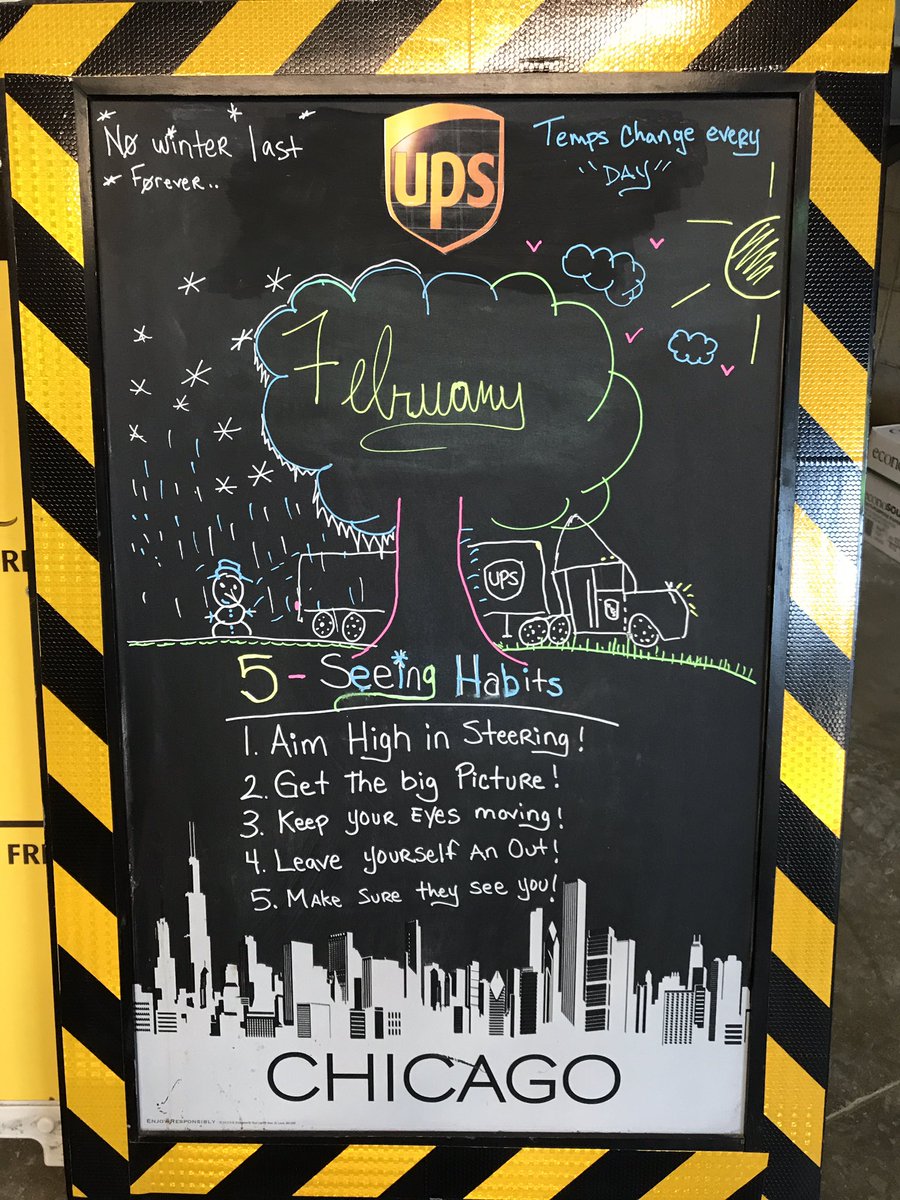 No winter last
Forever..
ups
Temps Change every
"DAY"
February
UPS
5 - Seeing Habits
1. Aim High in Steering!
2. Get The big Picture!
3. Keep your Eyes moving!
4. Leave yourself An Out!
5. Make Sure they see you!
CHICAGO
ENJOY RESPONSIBLY
FRE
econo